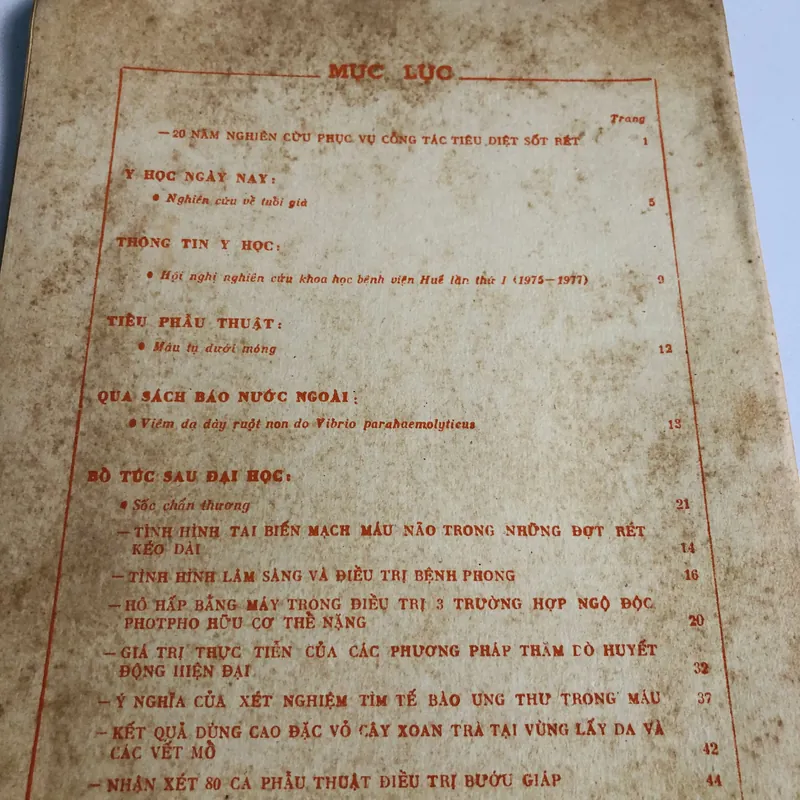 MỤC LỤC
Trang
— 20 NĂM NGHIÊN CỨU PHỤC VỤ CÔNG TÁC TIÊU DIỆT SỐT RÉT 1
Y HỌC NGÀY NAY:
• Nghiên cứu về tuổi già 5
THÔNG TIN Y HỌC:
• Hội nghị nghiên cứu khoa học bệnh viện Huế lần thứ I (1975—1977) 9
TIỂU PHẪU THUẬT:
• Máu tụ dưới móng 12
QUA SÁCH BÁO NƯỚC NGOÀI:
• Viêm dạ dày ruột non do Vibrio parahaemolyticus 13
BỔ TÚC SAU ĐẠI HỌC:
• Sốc chấn thương 21
— TÌNH HÌNH TAI BIẾN MẠCH MÁU NÃO TRONG NHỮNG ĐỢT RÉT
KÉO DÀI 14
— TÌNH HÌNH LÂM SÀNG VÀ ĐIỀU TRỊ BỆNH PHONG 16
— HÔ HẤP BẰNG MÁY TRONG ĐIỀU TRỊ 3 TRƯỜNG HỢP NGỘ ĐỘC
PHOTPHO HỮU CƠ THỂ NẶNG 20
— GIÁ TRỊ THỰC TIỄN CỦA CÁC PHƯƠNG PHÁP THĂM DÒ HUYẾT
ĐỘNG HIỆN ĐẠI 32
— Ý NGHĨA CỦA XÉT NGHIỆM TÌM TẾ BÀO UNG THƯ TRONG MÁU 37
— KẾT QUẢ DÙNG CAO ĐẶC VỎ CÂY XOAN TRÀ TẠI VÙNG LẤY DA VÀ
CÁC VẾT MỔ 42
— NHẬN XÉT 80 CA PHẪU THUẬT ĐIỀU TRỊ BƯỚU GIÁP 44